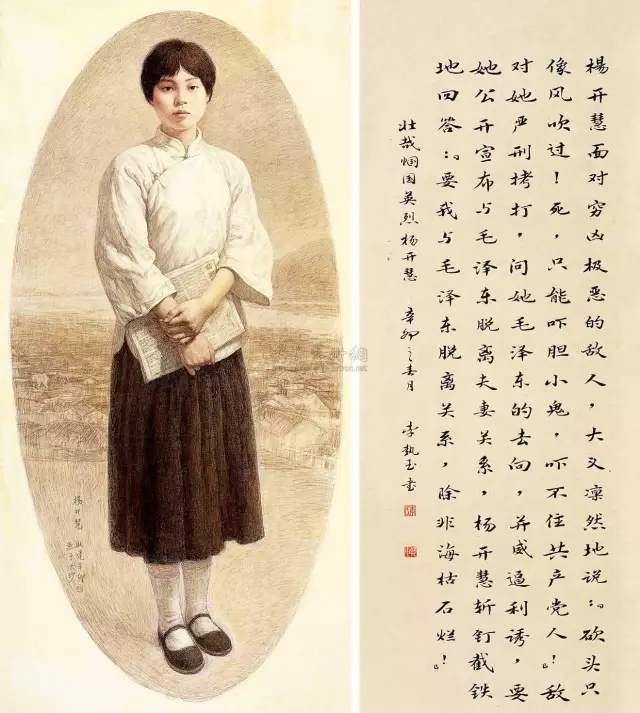 楊开慧面对穷凶极恶的敌人，大义凛然地说：“砍头只
像风吹过！死，只能吓胆小鬼，吓不住共产党人！”敌
对她严刑拷打，问她毛泽东的去向，并威逼利诱，要
她公开宣布与毛泽东脱离夫妻关系，杨开慧斩钉截铁
地回答：“要我与毛泽东脱离关系，除非海枯石烂！”
壮哉国英烈杨开慧 辛卯之春月 李执玉书
楊开慧